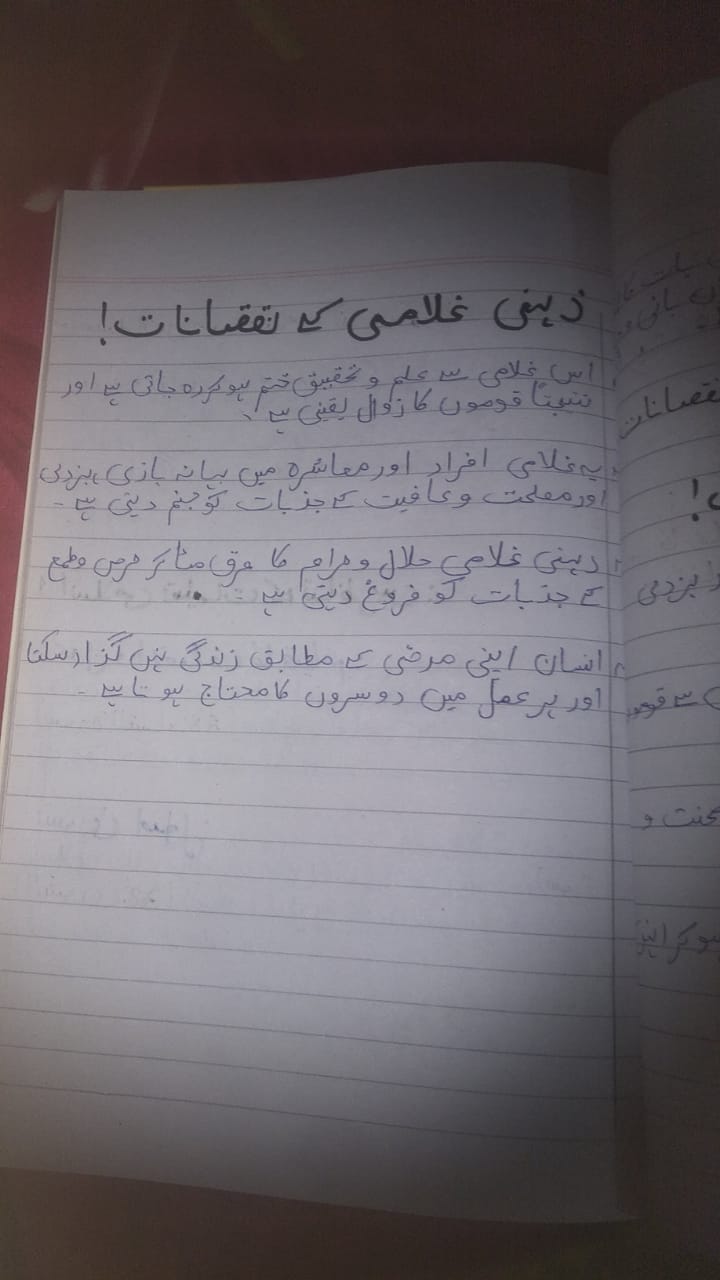 ذہنی غلامی کے نقصانات!
اس غلامی سے علم و تحقیق ختم ہو کر رہ جاتی ہے اور
نتیجتاً قوموں کا زوال یقینی ہے۔
یہ غلامی افراد اور معاشرہ میں بہانہ بازی، بزدلی
اور مصلحت و عافیت کے جذبات کو جنم دیتی ہے۔
ذہنی غلامی حلال و حرام کا فرق مٹا کر حرص و طمع
کے جذبات کو فروغ دیتی ہے۔
انسان اپنی مرضی کے مطابق زندگی نہیں گزار سکتا
اور ہر عمل میں دوسروں کا محتاج ہوتا ہے۔
نقصانات
بزدلی
محنت و